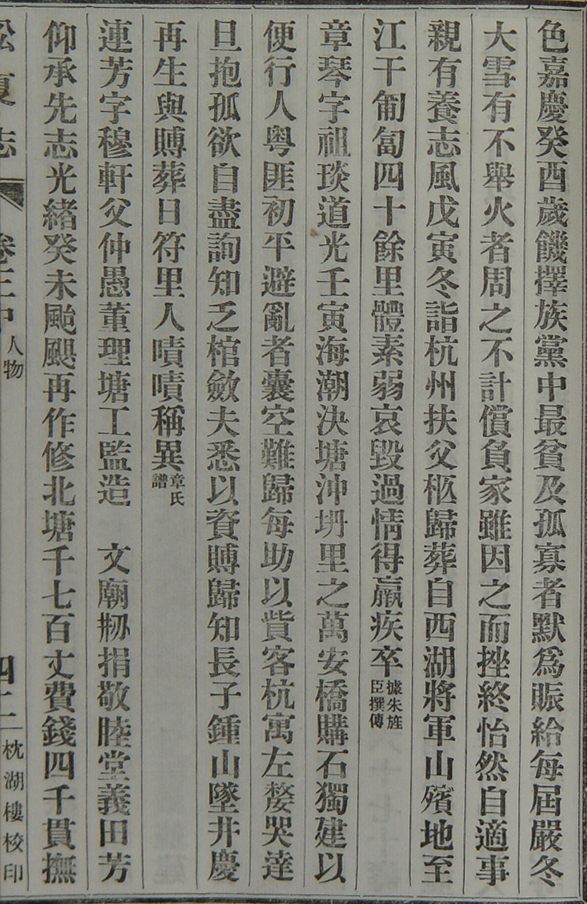 色嘉慶癸酉歲饑擇族黨中最貧及孤寡者默爲賑給每屆嚴冬
大雪有不舉火者周之不計償負家雖因之而挫終怡然自適事
親有養志風戊寅冬詣杭州扶父柩歸葬自西湖將軍山殯地至
江干匍匐四十餘里體素弱哀毀過情得羸疾卒據朱旌臣撰傳
章琴字祖琰道光壬寅海潮決塘沖坍里之萬安橋購石獨建以
便行人粵匪初平避亂者囊空難歸每助以貲客杭寓左嫠哭達
旦抱孤欲自盡詢知乏棺斂夫悉以資賻歸知長子鍾山墜井慶
再生與賻葬日符里人嘖嘖稱異章氏譜
連芳字穆軒父仲愚董理塘工監造　文廟捐敬睦堂義田芳
仰承先志光緒癸未颱颶再作修北塘千七百丈費錢四千貫撫
松夏志　卷三中　人物　四二　枕湖樓校印